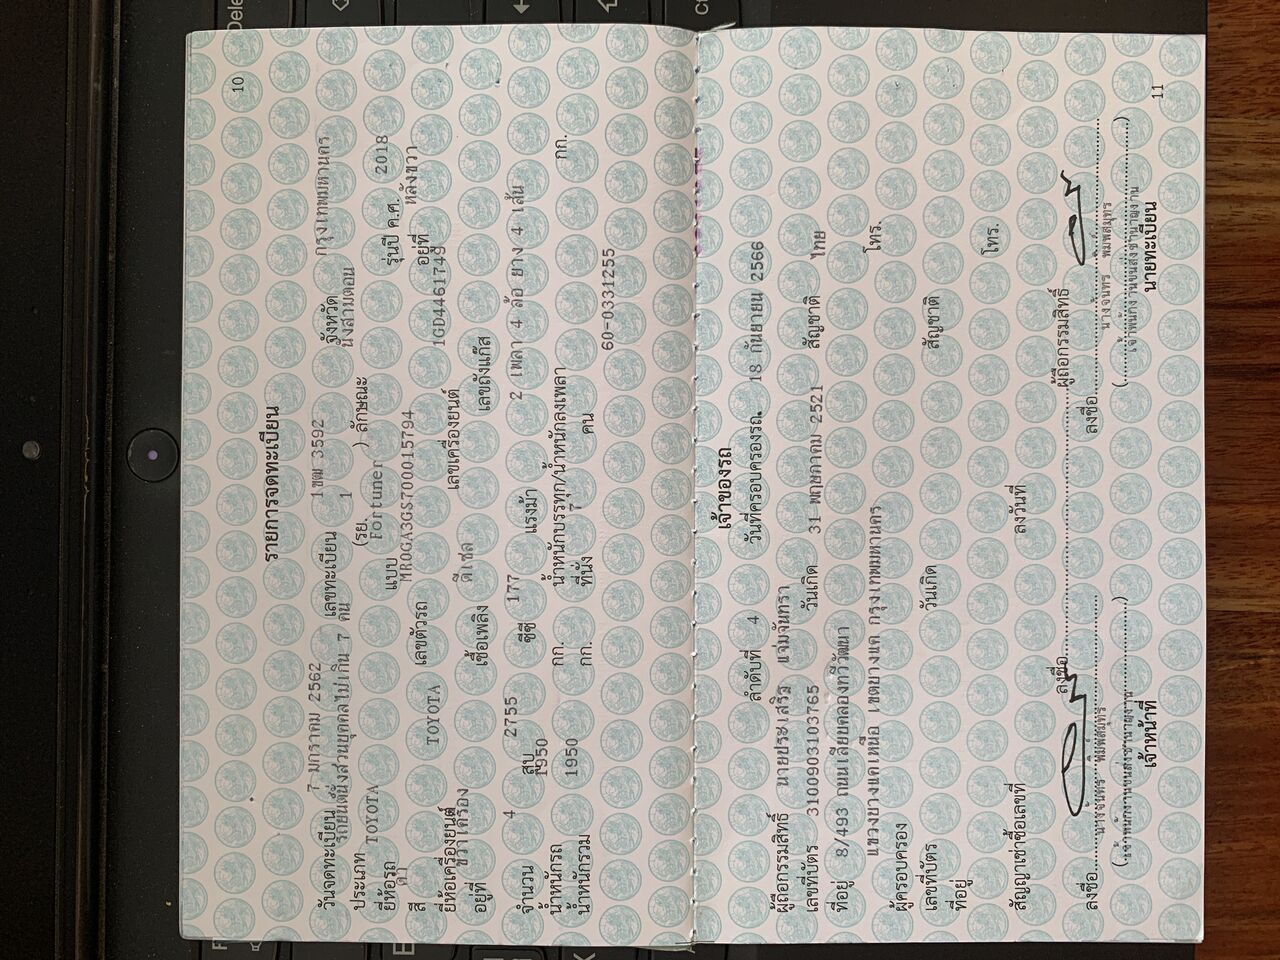 10
รายการจดทะเบียน
วันจดทะเบียน 7 มกราคม 2562 เลขทะเบียน 1ขฒ 3592 จังหวัด กรุงเทพมหานคร
ประเภท รถยนต์นั่งส่วนบุคคลไม่เกิน 7 คน (รย. 1 ) ลักษณะ นั่งสามตอน
ยี่ห้อรถ TOYOTA แบบ Fortuner รุ่นปี ค.ศ. 2018
สี ดำ เลขตัวรถ MR0GA3GS700015794 อยู่ที่ หลังขวา
ยี่ห้อเครื่องยนต์ TOYOTA เลขเครื่องยนต์ 1GD4461749
อยู่ที่ ขวาเครื่อง เชื้อเพลิง ดีเซล เลขถังแก๊ส
จำนวน 4 สูบ 2755 ซีซี 177 แรงม้า 2 เพลา 4 ล้อ ยาง 4 เส้น
น้ำหนักรถ 1950 กก. น้ำหนักบรรทุก/น้ำหนักลงเพลา กก.
น้ำหนักรวม 1950 กก. ที่นั่ง 7 คน
60-0331255
เจ้าของรถ
ลำดับที่ 4 วันที่ครอบครองรถ 18 กันยายน 2566
ผู้ถือกรรมสิทธิ์ นายประเสริฐ แจ่มจันทรา
เลขที่บัตร 3100903103765 วันเกิด 31 พฤษภาคม 2521 สัญชาติ ไทย
ที่อยู่ 8/493 ถนนเลียบคลองทวีวัฒนา
แขวงบางแคเหนือ เขตบางแค กรุงเทพมหานคร โทร.
ผู้ครอบครอง
เลขที่บัตร วันเกิด สัญชาติ
ที่อยู่ โทร.
สัญญาเช่าซื้อเลขที่ ลงวันที่
ลงชื่อ ผู้ถือกรรมสิทธิ์
ลงชื่อ ลงชื่อ
เจ้าหน้าที่ นายทะเบียน
11